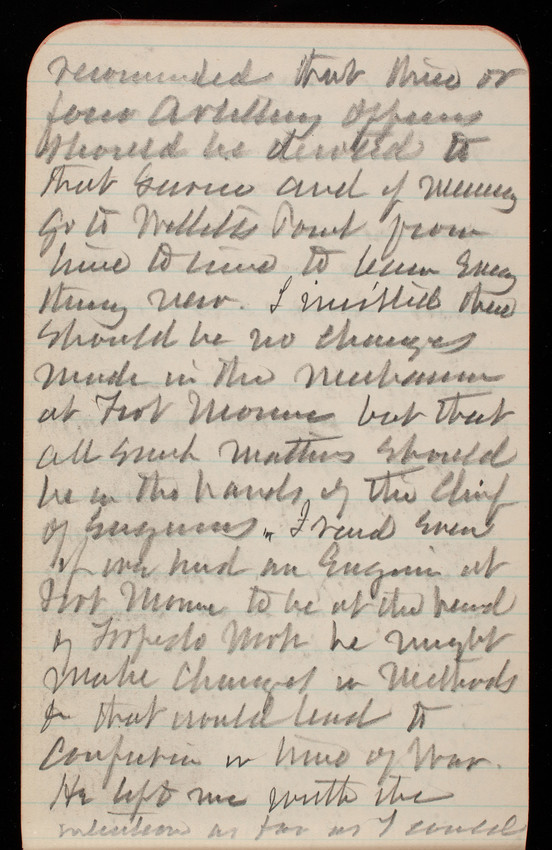 recommended that three or
four Artillery Officers
should be devoted to
that Service and if necessary
go to Willetts Point from
time to time to learn every
thing new. I insisted there
should be no changes
made in the mechanism
at Fort Monroe but that
all such matters should
be in the hands of the Chief
of Engineers. I said even
if we had an Engineer at
Fort Monroe to be at the head
of Torpedo Work he might
make changes in Methods
& that would lead to
Confusion in time of War.
He left me with the
intention as far as I could